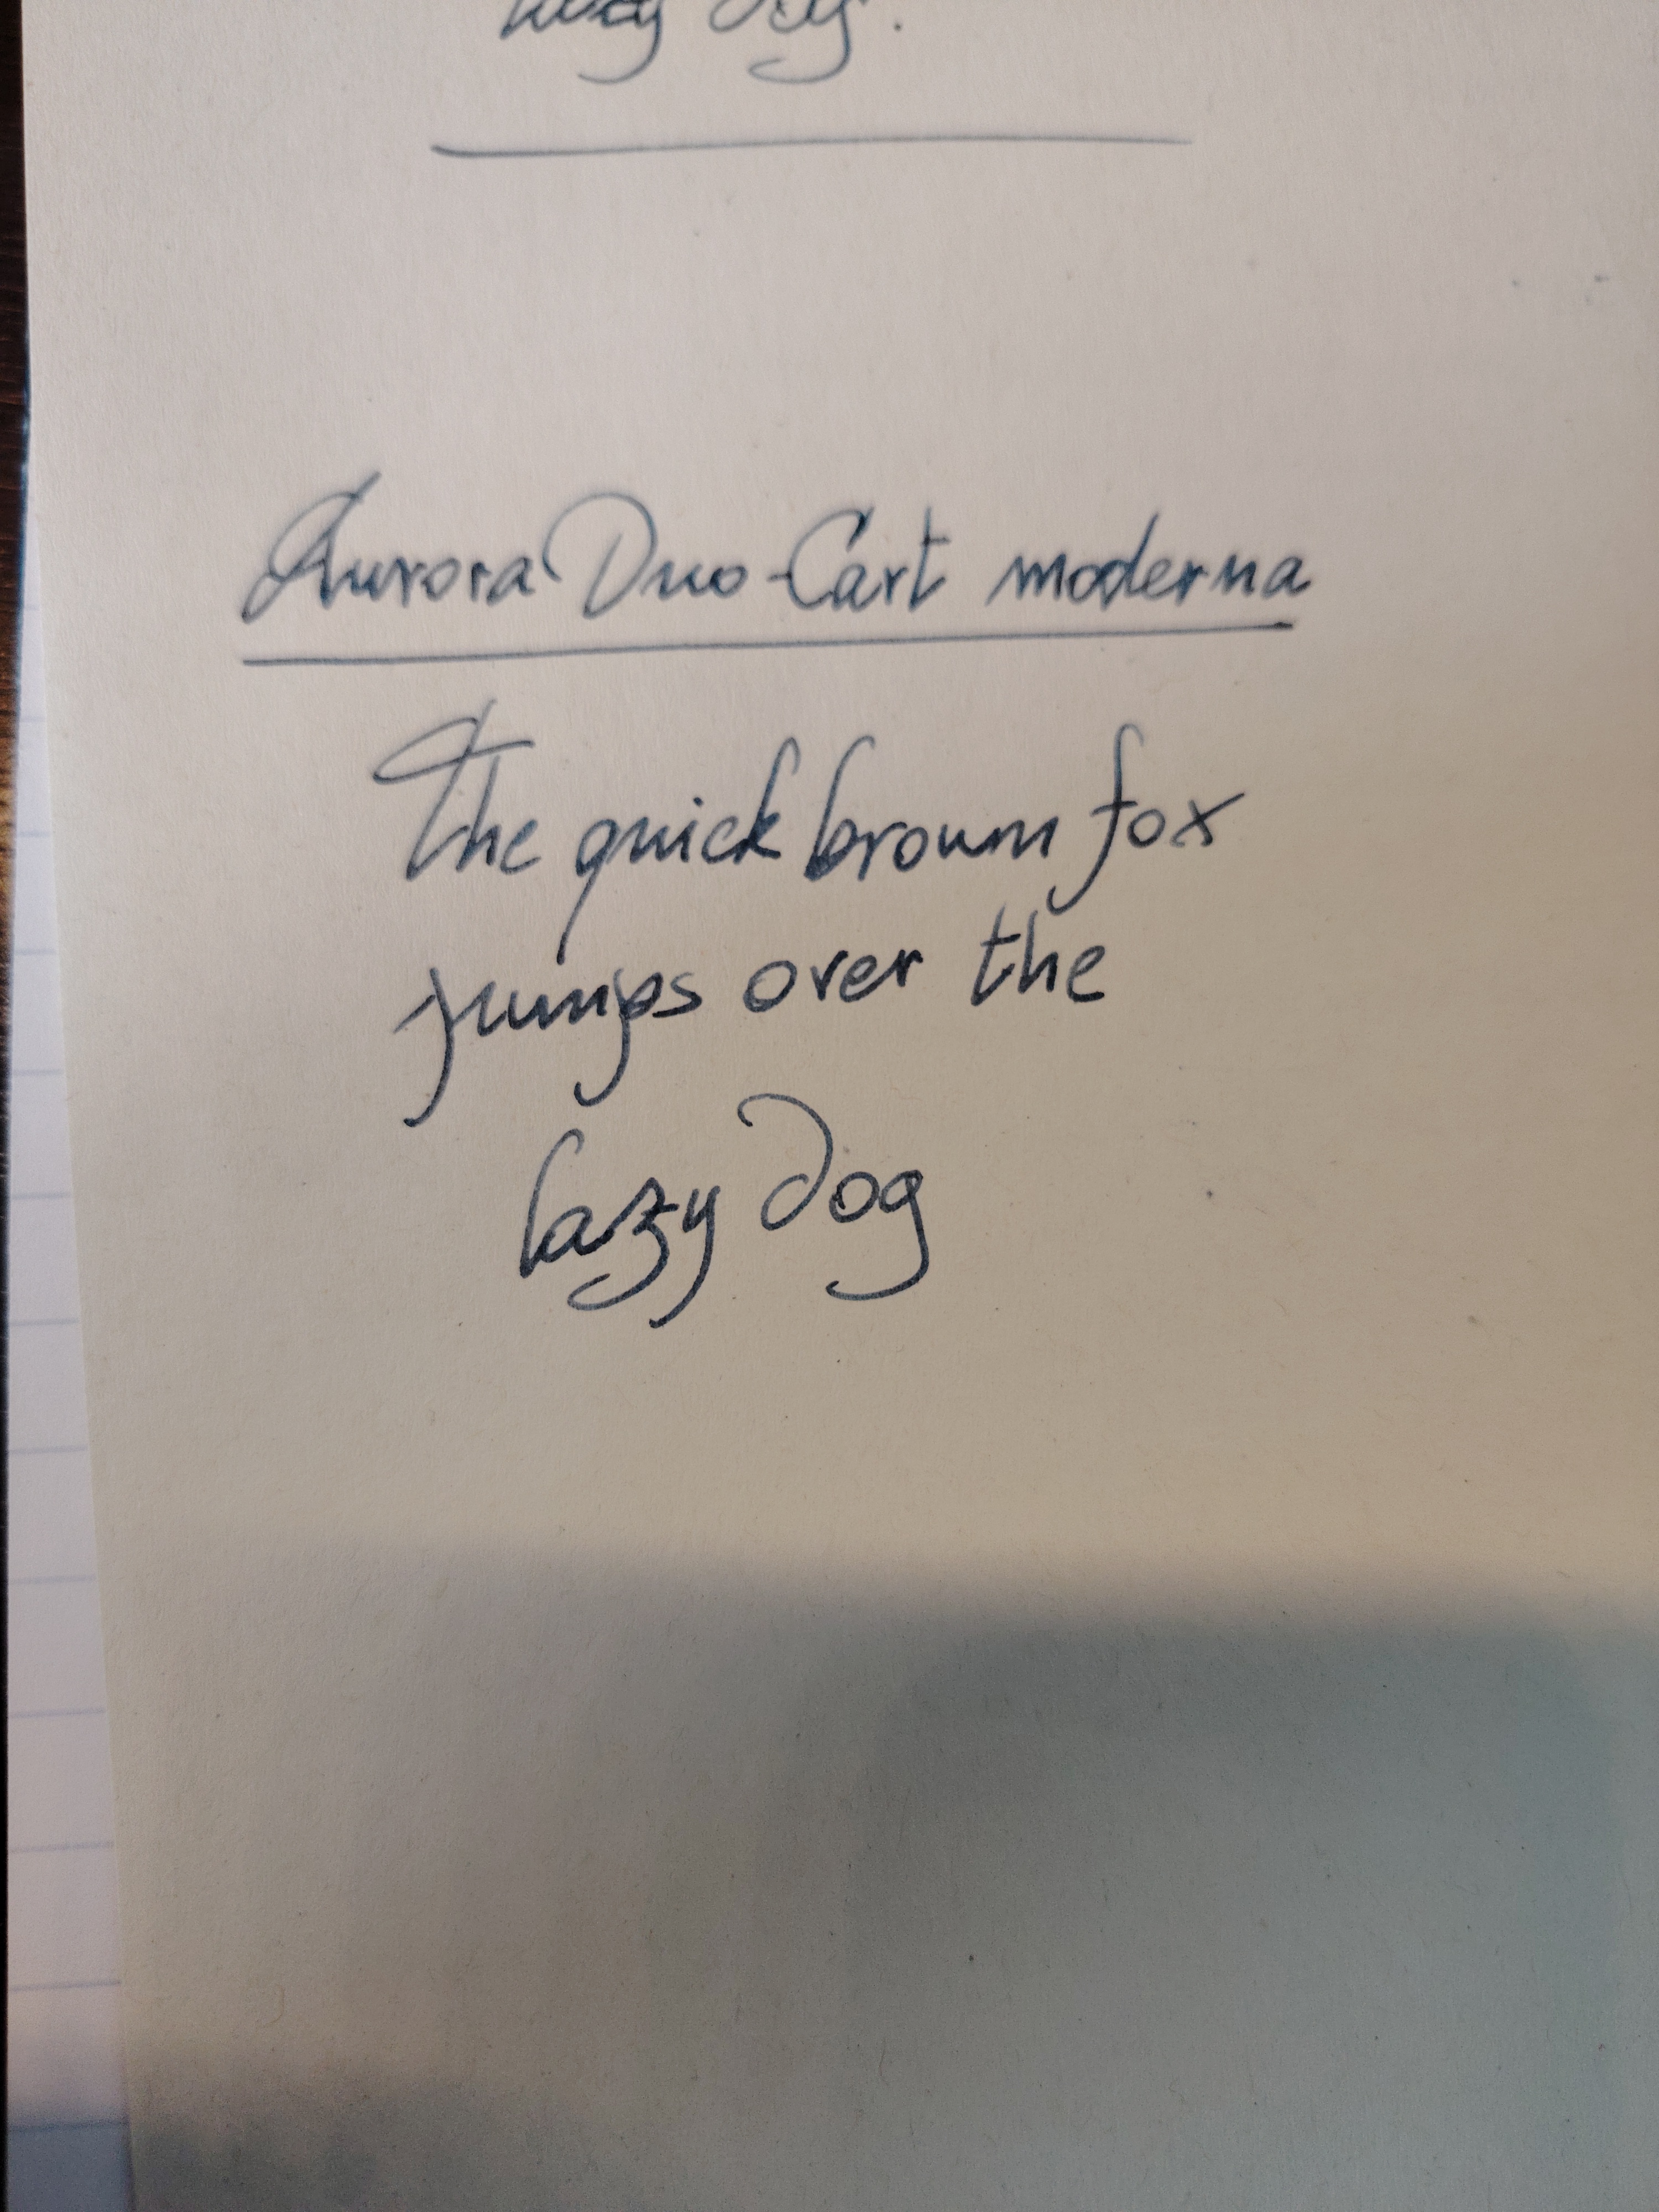 lazy dog.
Aurora Duo-Cart moderna
The quick brown fox
jumps over the
lazy dog